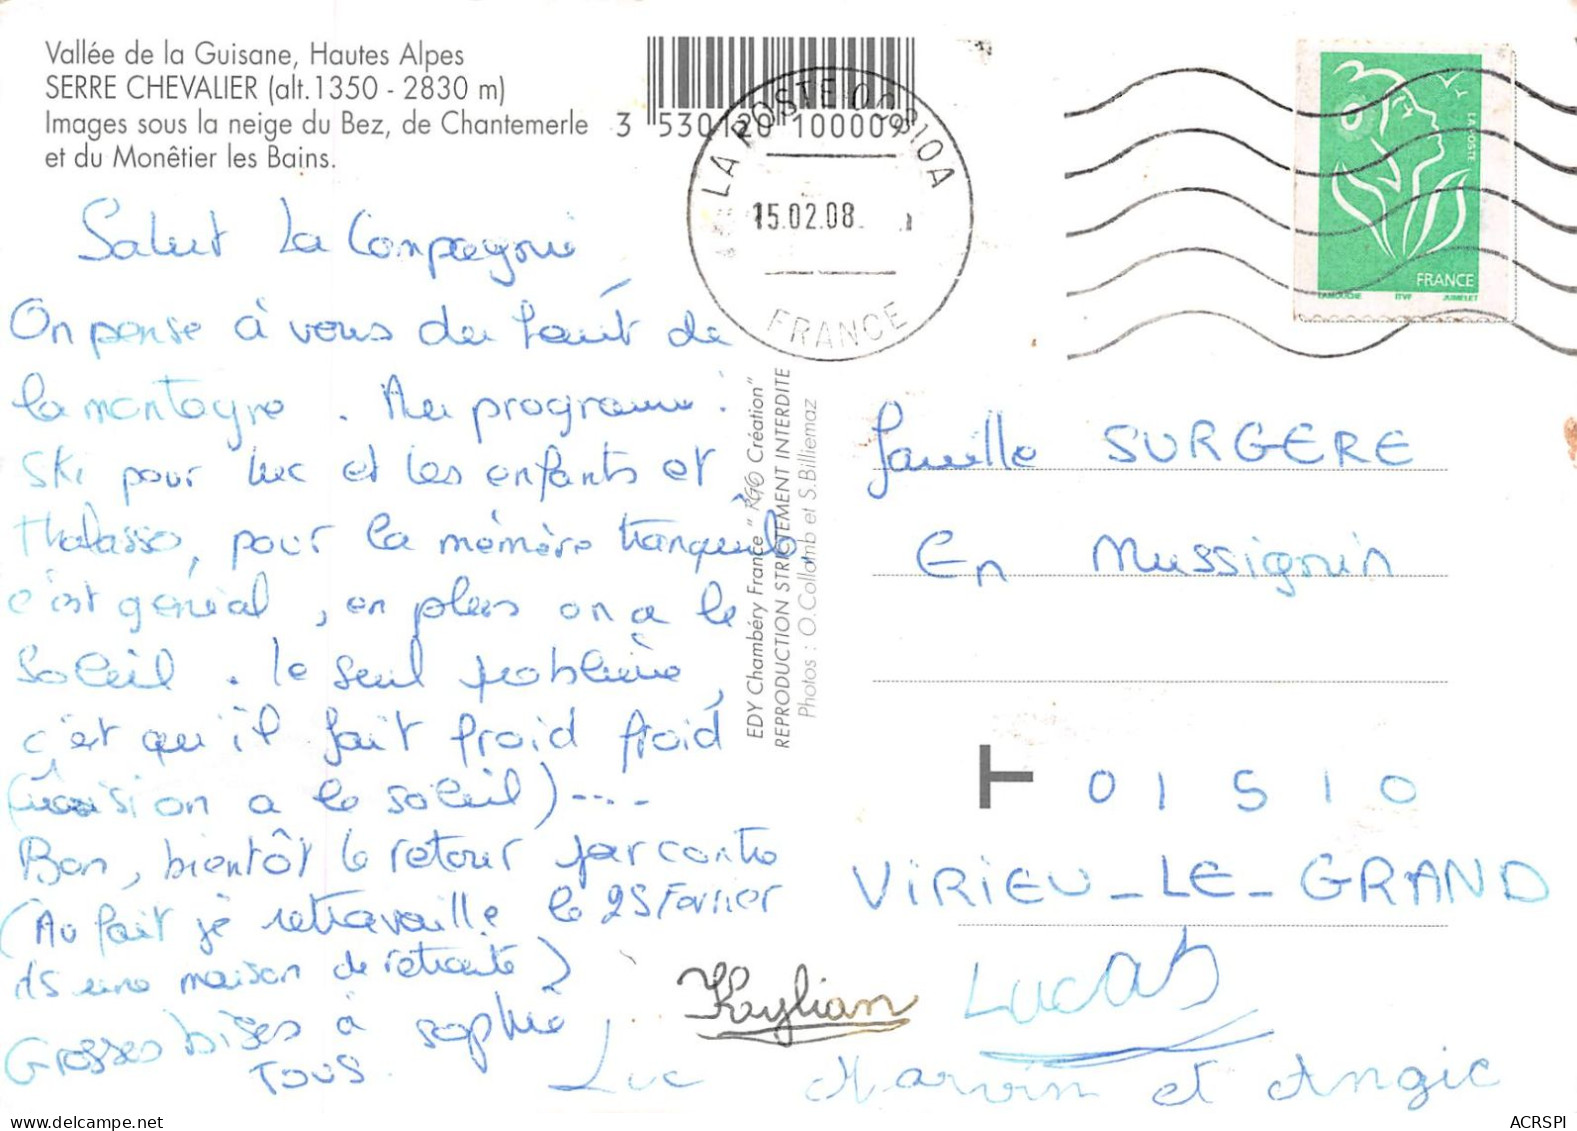 Vallée de la Guisane, Hautes Alpes
SERRE CHEVALIER (alt.1350 - 2830 m)
Images sous la neige du Bez, de Chantemerle
et du Monêtier les Bains.
3 530120 100009
LA POSTE 09810A
15.02.08
FRANCE
LA POSTE
FRANCE
LAMOUCHE ITVF JUMELET
Salut La Compagnie
On pense à vous du haut de
la montagne. Au programme :
Ski pour Luc et les enfants et
thalasso, pour la mémère tranquille,
c'est génial, en plus on a le
soleil. le seul problème,
c'est qu'il fait froid froid
(sion a le soleil) ----
Bon, bientôt le retour par contre
(Au fait je retravaille le 25 Février
ds une maison de retraite)
Grosses bises à
TOUS
sophie,
Kaylian
Lucas
Luc
Marvin et Angie
EDY Chambéry France "RGO Création"
REPRODUCTION STRICTEMENT INTERDITE
Photos : O.Collomb et S.Billiemaz
famille SURGERE
En Mussignin
T 01510
VIRIEU-LE-GRAND
ACRSPI